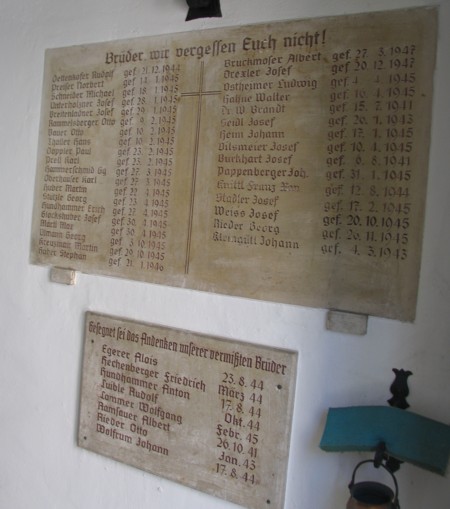 Brüder wir vergessen Euch nicht!
Rudolf gef. 21.12.1944
Norbert gef. 14. 1.1945
Schreiber Michael gef. 18. 1.1945
Josef gef. 28. 1.1945
Josef gef. 29. 1.1945
Otto gef. 9. 2.1945
Bauer Otto gef. 10. 2.1945
Thaller Hans gef. 10. 2.1945
Paul gef. 23. 2.1945
Karl gef. 23. 2.1945
Hammerschmid Gg gef. 27. 3.1945
Karl gef. 27. 3.1945
Huber Martin gef. 22. 4.1945
Georg gef. 23. 4.1945
Hundhammer Franz gef. 27. 4.1945
Josef gef. 30. 4.1945
Max gef. 30. 4.1945
Georg gef. 3.10.1945
Martin gef. 29.10.1945
Huber Stephan gef. 21. 1.1946
Bruchmoser Albert gef. 27. 3.1947
Drexler Josef gef. 20.12.1947
Ostheimer Ludwig gef. 4. 4.1945
Hahne Walter gef. 16. 4.1945
Fr. W. Brandt gef. 15. 7.1941
Josef gef. 20. 1.1943
Heini Johann gef. 17. 1.1945
Bilsmeier Josef gef. 10. 4.1945
Burkhart Josef gef. 6. 8.1941
Pappenberger Joh. gef. 31. 1.1945
Franz gef. 12. 8.1944
Stadler Josef gef. 17. 2.1945
Weiss Josef gef. 20.10.1945
Rieder Georg gef. 26.11.1945
Johann gef. 4. 3.1943
Gesegnet sei das Andenken unserer vermißten Brüder
Egerer Alois 23. 8. 44
Hechenberger Friedrich März 44
Hundhammer Anton 17. 8. 44
Luble Rudolf Okt. 44
Lammer Wolfgang Febr. 45
Ramsauer Albert 26.10. 41
Rieder Otto Jan. 43
Wolfrum Johann 17. 8. 44